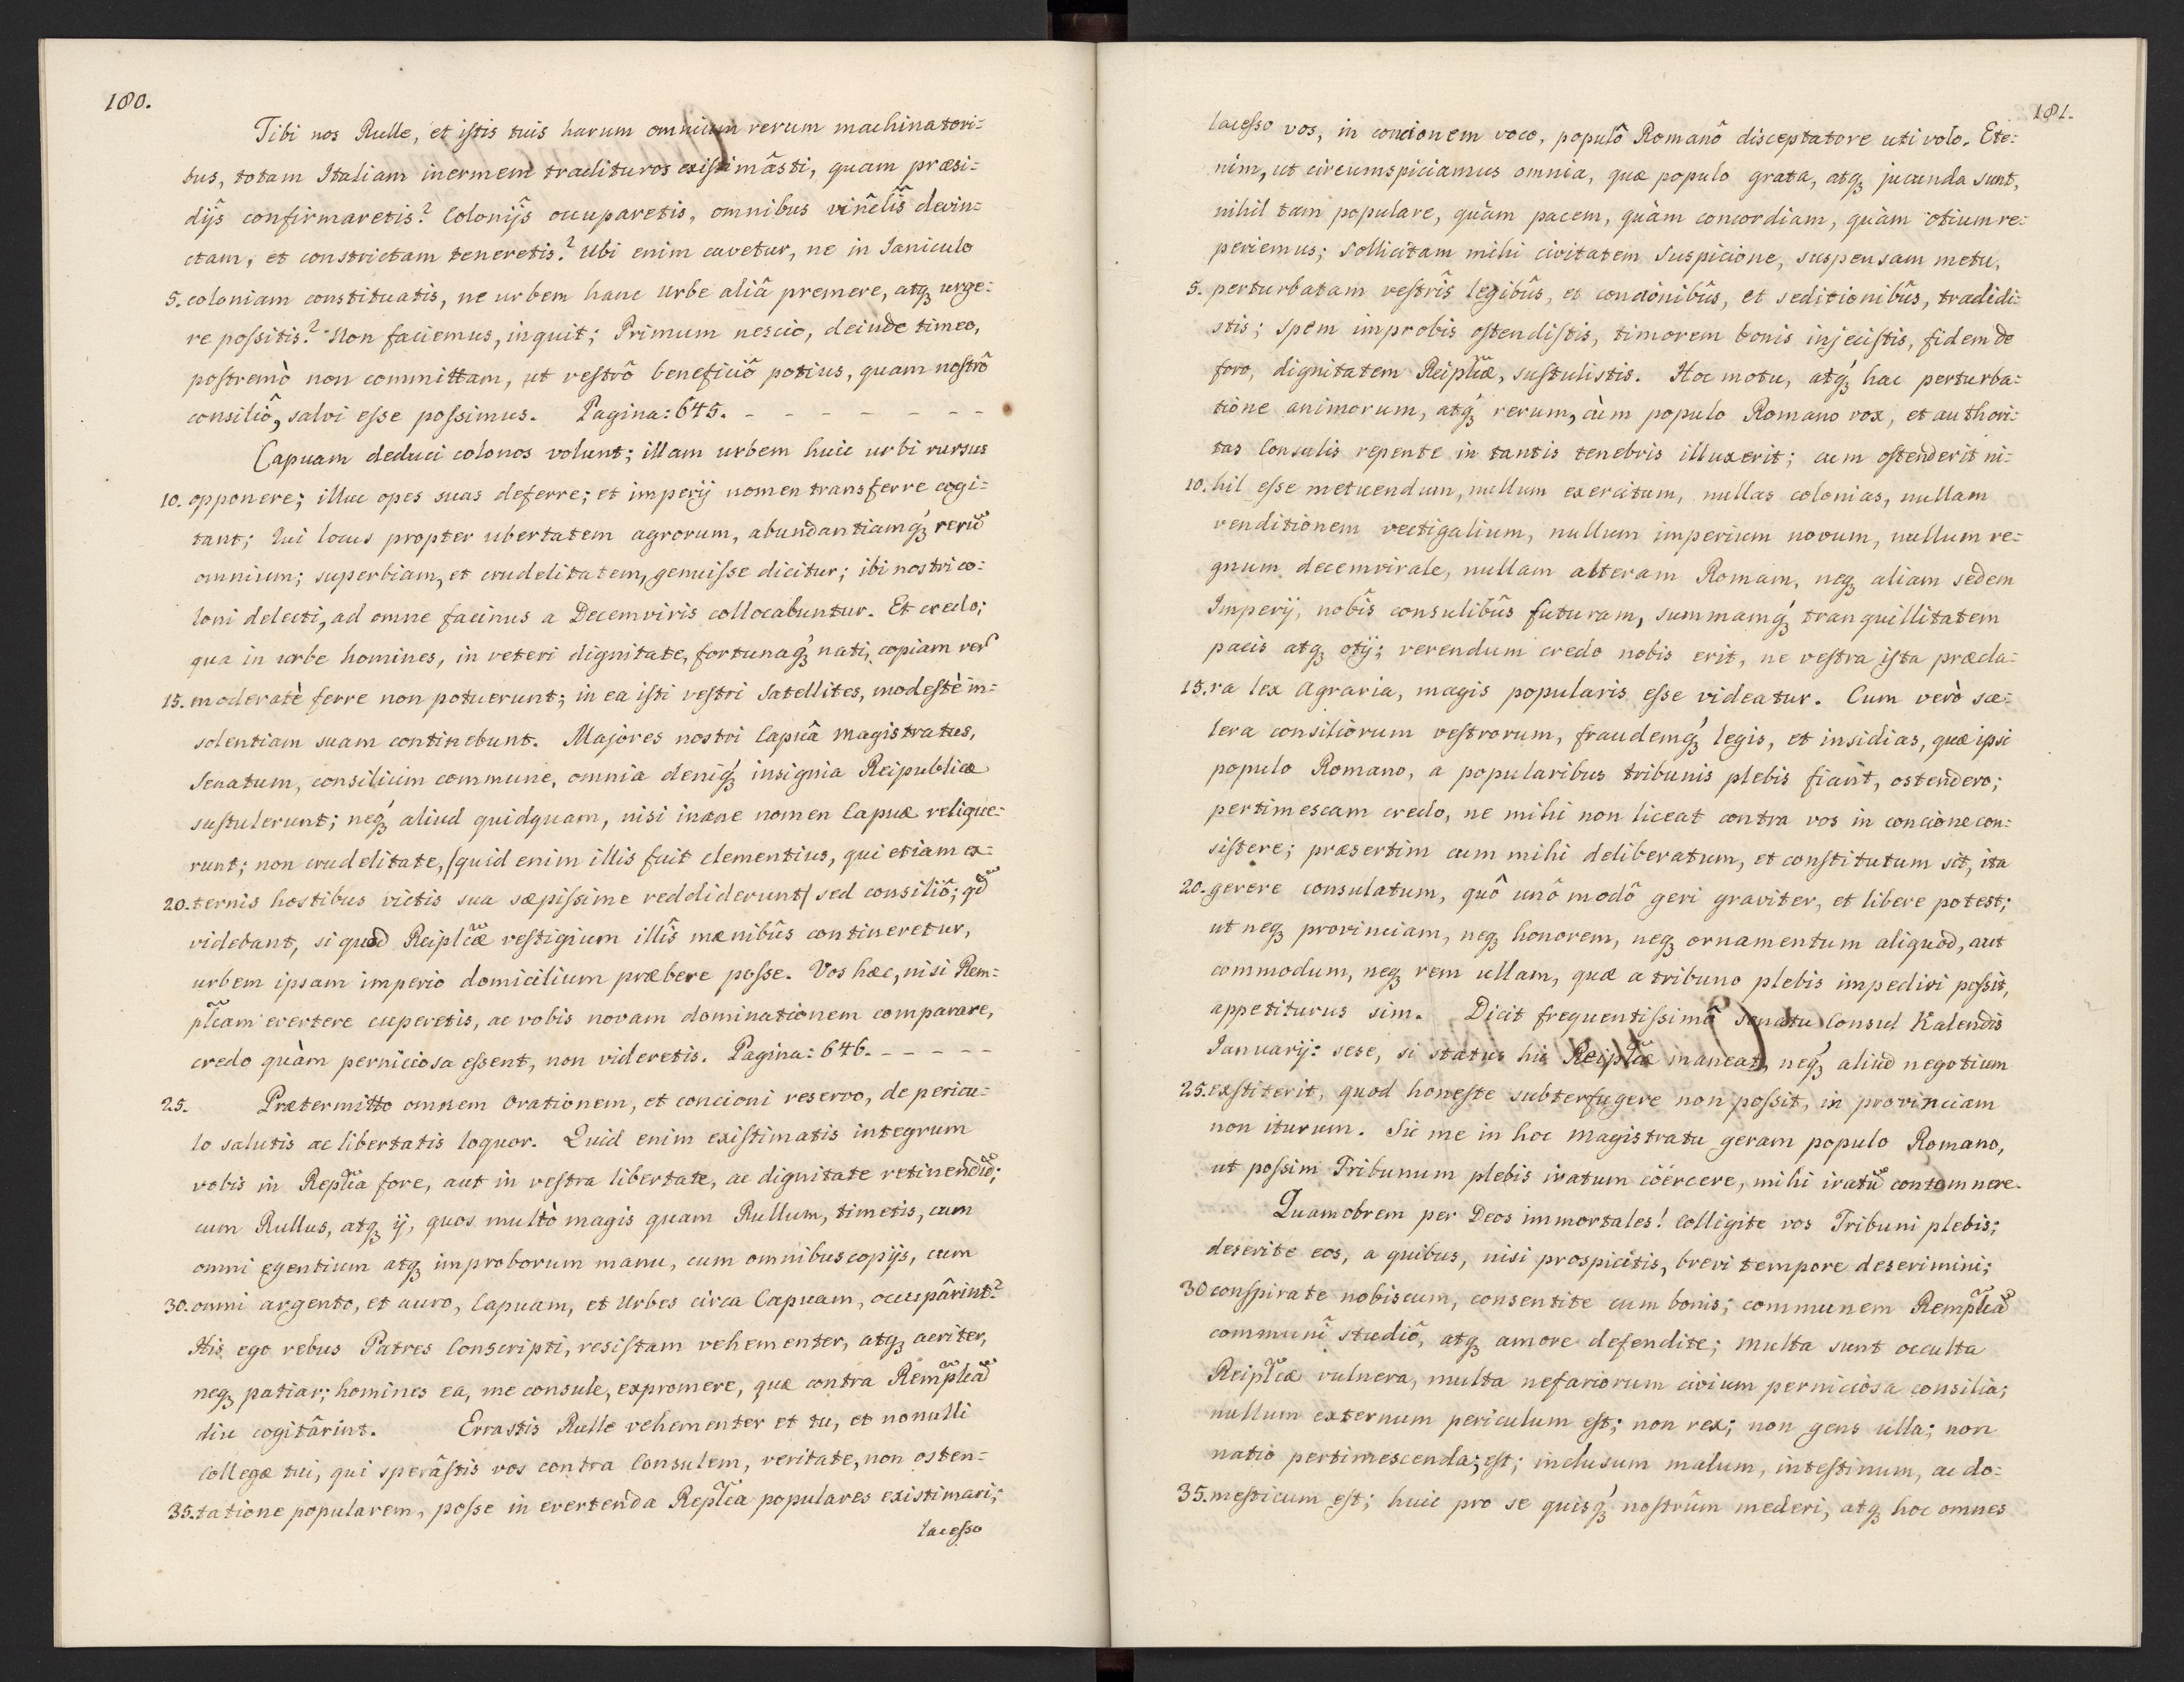 180.
Tibi nos Rulle, et istis tuis harum omnium rerum machinatori=
bus, totam Italiam inermem tradituros existimâsti, quam præsi=
dijs confirmaretis? Colonijs occuparetis, omnibus vinclîs devin=
ctam, et constrictam teneretis? Ubi enim cavetur, ne in Janiculo
5. coloniam constituatis, ne urbem hanc Urbe aliâ premere, atq₃ urge=
re possitis? Non faciemus, inquit; Primum nescio, deinde timeo,
postremò non committam, ut vestrô beneficiô potius, quam nostrô
consiliô, salvi esse possimus. Pagina: 645. - - - - - - - -
Capuam deduci colonos volunt; illam urbem huic urbi rursus
10. opponere; illuc opes suas deferre; et imperij nomen transferre cogi=
tant; Qui locus propter ubertatem agrorum, abundantiamq́₃ rerū
omnium; superbiam, et crudelitatem, genuisse dicitur; ibi nostri co=
loni delecti, ad omne facinus a Decemviris collocabuntur. Et credo;
qua in urbe homines, in veteri dignitate, fortunaq́₃ nati, copiam rer̃
15. moderatè ferre non potuerunt; in ea isti vestri Satellites, modestè in=
solentiam suam continebunt. Majores nostri Capuâ magistratus,
Senatum, consilium commune, omnia deniq́₃ insignia Reipublicæ
sustulerunt; neq́₃ aliud quidquam, nisi inane nomen Capuæ relique=
runt; non crudelitate, /quid enim illis fuit clementius, qui etiam ex=
20. ternis hostibus victis sua sæpissime reddiderunt/ sed consiliô; qd̃
videbant, si quod Reiplicæ vestigium illîs mænibûs contineretur,
urbem ipsam imperio domicilium præbere posse. Vos hæc, nisi Rem=
plicam evertere cuperetis, ac vobis novam dominationem comparare,
credo quàm perniciosa essent, non videretis. Pagina: 646. - - - - -
25. Prætermitto omnem orationem, et concioni reservo, de pericu=
lo salutis ac libertatis loquor. Quid enim existimatis integrum
vobis in Replica fore, aut in vestra libertate, ac dignitate retinendū;
cum Rullus, atq₃ ij, quos multò magis quam Rullum, timetis, cum
omni egentium atq₃ improborum manu, cum omnibus copijs, cum
30. omni argento, et auro, Capuam, et Urbes circa Capuam, occupârint?
His ego rebus Patres Conscripti, resistam vehementer, atq₃ acriter,
neq₃ patiar; homines ea, me consule, expromere, quæ contra Remplicā
diu cogitârint. Errastis Rulle vehementer et tu, et nonulli
Collegæ tui, qui sperâstis vos contra Consulem, veritate, non osten=
35. tatione popularem, posse in evertenda Replica populares existimari;
lacesso
181.
lacesso vos, in concionem voco, populô Romanô disceptatore uti volo. Ete=
nim, ut circumspiciamus omnia, quæ populo grata, atq₃ jucunda sunt,
nihil tam populare, quàm pacem, quàm concordiam, quàm otium re=
periemus; Sollicitam mihi civitatem Suspicione, suspensam metu,
5. perturbatam vestrîs legibûs, et concionibûs, et seditionibûs, tradidi=
stis; Spem improbis ostendistis, timorem bonis injecistis, fidem de
foro, dignitatem Reiplicæ, sustulistis. Hoc motu, atq́₃ hac perturba=
tione animorum, atq́₃ rerum, cùm populo Romano vox, et authori=
tas Consulis repente in tantis tenebris illuxerit; cum ostenderit ni=
10. hil esse metuendum, nullum exercitum, nullas colonias, nullam
venditionem vectigalium, nullum imperium novum, nullum re=
gnum decemvirale, nullam alteram Romam, neq₃ aliam sedem
Imperij, nobîs consulibûs futuram, summamq́₃ tranquillitatem
pacis atq₃ otij; verendum credo nobis erit, ne vestra ista præcla=
15. ra lex Agraria, magis popularis esse videatur. Cum verò sce=
lera consiliorum vestrorum, fraudemq́₃ legis, et insidias, quæ ipsi
populo Romano, a popularibus tribunis plebis fiant, ostendero;
pertimescam credo, ne mihi non liceat contra vos in concione con=
sistere; præsertim cum mihi deliberatum, et constitutum sit, ita
20. gerere consulatum, quô unô modô geri graviter, et libere potest;
ut neq₃ provinciam, neq₃ honorem, neq₃ ornamentum aliquod, aut
commodum, neq₃ rem ullam, quæ a tribuno plebis impediri possit,
appetiturus sim. Dicit frequentissimô Senatu Consul Kalendis
Januarij: sese, si status hic Reiplicæ maneat, neq́₃ aliud negotium
25. exstiterit, quod honeste subterfugere non possit, in provinciam
non iturum. Sic me in hoc magistratu geram populo Romano,
ut possim Tribunum plebis iratum coërcere, mihi iratū contemnere.
Quamobrem per Deos immortales! Colligite vos Tribuni plebis;
deserite eos, a quibus, nisi prospicitis, brevi tempore deserimini;
30 conspirate nobiscum, consentite cum bonis; communem Remplicā
communi studiô, atq₃ amore defendite; Multa sunt occulta
Reiplicæ vulnera, multa nefariorum civium perniciosa consilia;
nullum externum periculum est; non rex; non gens ulla; non
natio pertimescenda; est; inclusum malum, intestinum, ac do=
35. mesticum est; huic pro se quisq́₃ nostrûm mederi, atq₃ hoc omnes